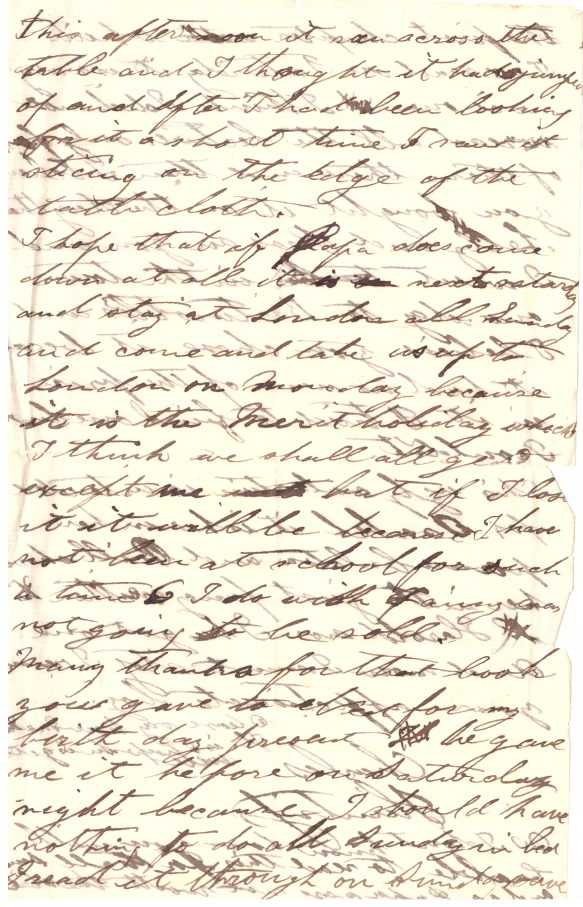 this after noon it ran across the
table and I thought it had jumped
of and after I had been looking
for it a short time I saw it
sticing on the edge of the
table cloth.
I hope that if Papa does come
down at all it is next saturday
and stay at London all Sunday
and come and take us up to
London on Monday because
it is the Merit holiday which
I think we shall all get
except me but if I lose
it it will be because I have
not been at school for such
a time I do wish Fancy was
not going to be sold.
Many thanks for that book
you gave to for my
birth day present he gave
me it before on Saturday
night because I should have
nothing to do all Sunday in bed
I read it through on Sunday